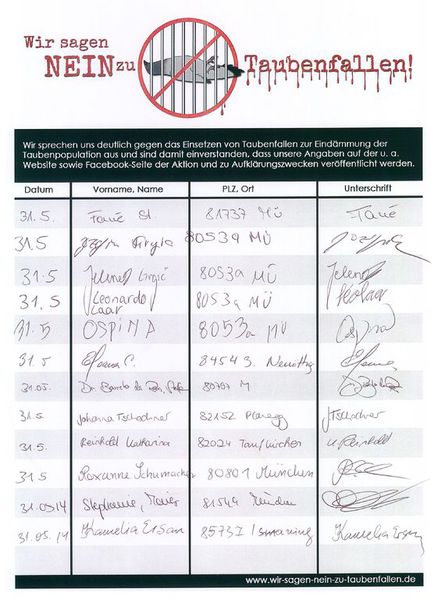 Wir sagen
NEIN zu Taubenfallen!
Wir sprechen uns deutlich gegen das Einsetzen von Taubenfallen zur Eindämmung der
Taubenpopulation aus und sind damit einverstanden, dass unsere Angaben auf der u. a.
Website sowie Facebook-Seite der Aktion und zu Aufklärungszwecken veröffentlicht werden.
Datum Vorname, Name PLZ, Ort Unterschrift
31.5. 81737 MÜ
31.5 80539 MÜ
31.5 Jelena 80539 MÜ Jelena
31.5 Leonardo 80539 MÜ
Laar
31.5 OSPINA 80539 MÜ Ospina
31.5 84543
31.05. Dr. 80707 M
31.5. Johanna Tschochner 82152 Planegg JTschochner
31.5 Reinhold Katharina 82024 Taufkirchen K. Reinhold
31.5 Roxanne Schumacher 80801 München
31.05.14 Stephanie, 81544 München
31.05.14 Kamelia Ersan 85737 Ismaning Kamelia Ersan
www.wir-sagen-nein-zu-taubenfallen.de